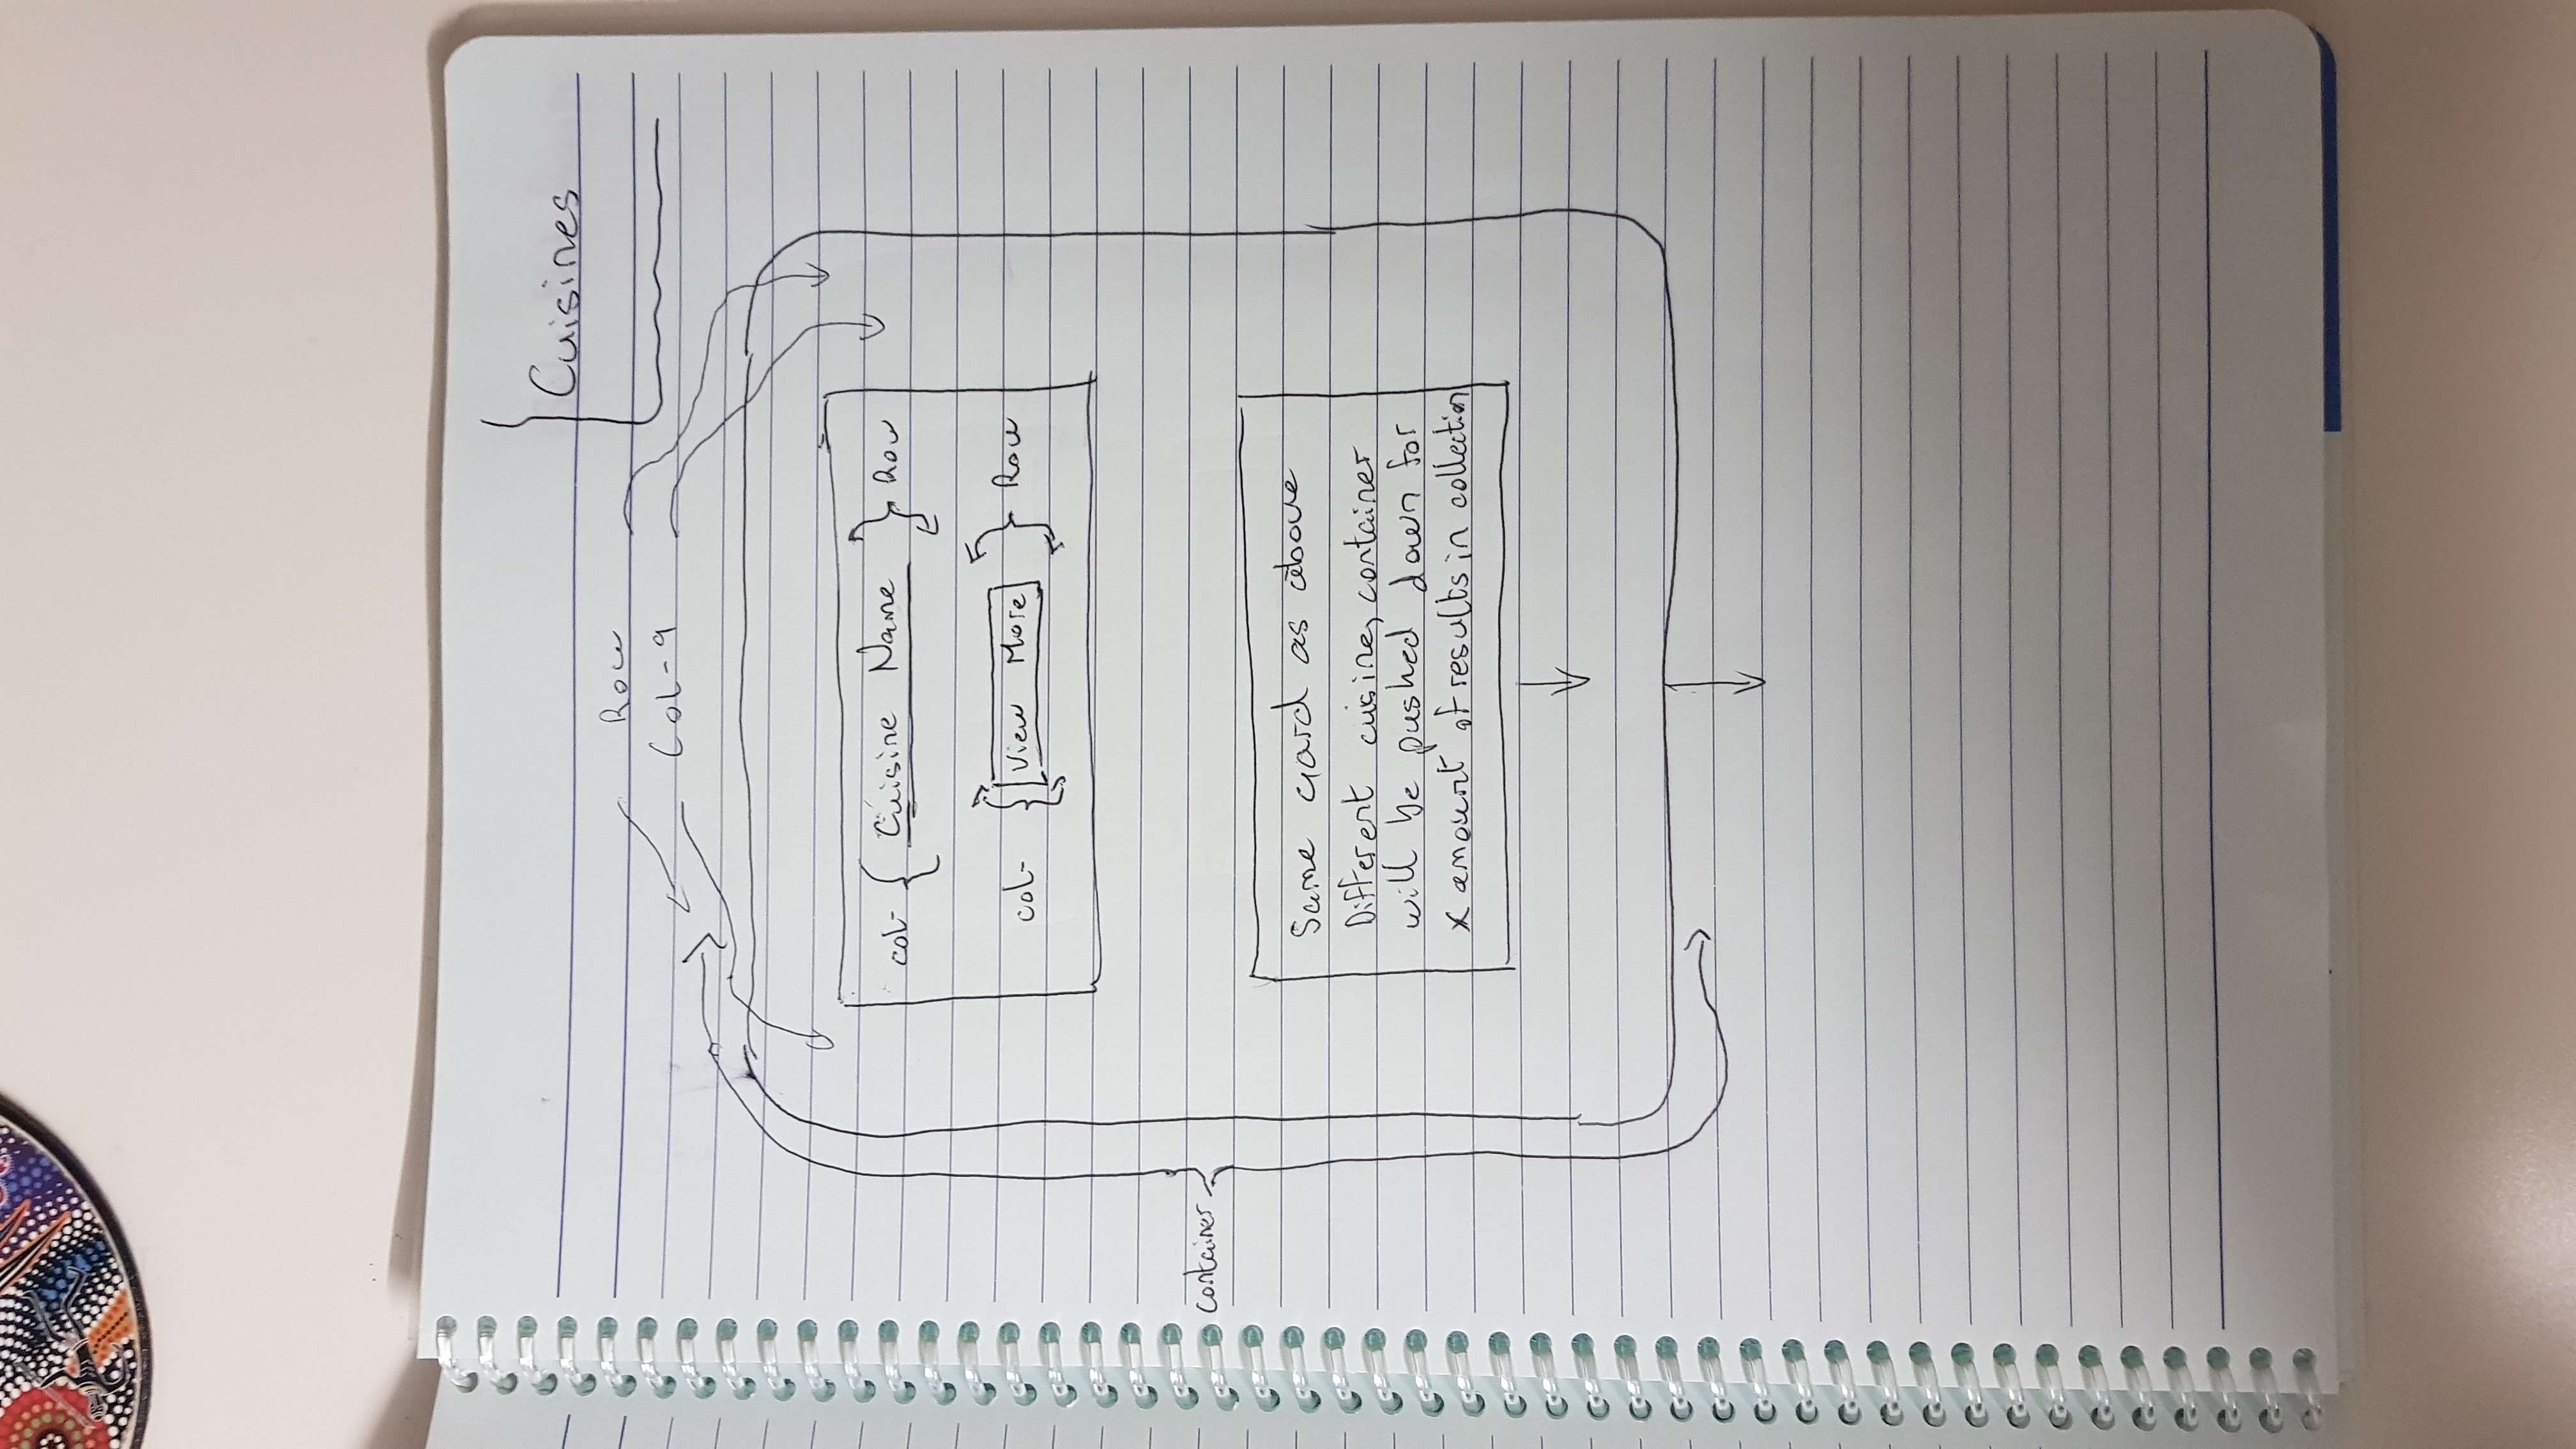 Cuisines
Row
Col-9
col- { Cuisine Name } Row
col- { View More } Row
container
Same card as above
Different cuisine, container
will be pushed down for
x amount of results in collection